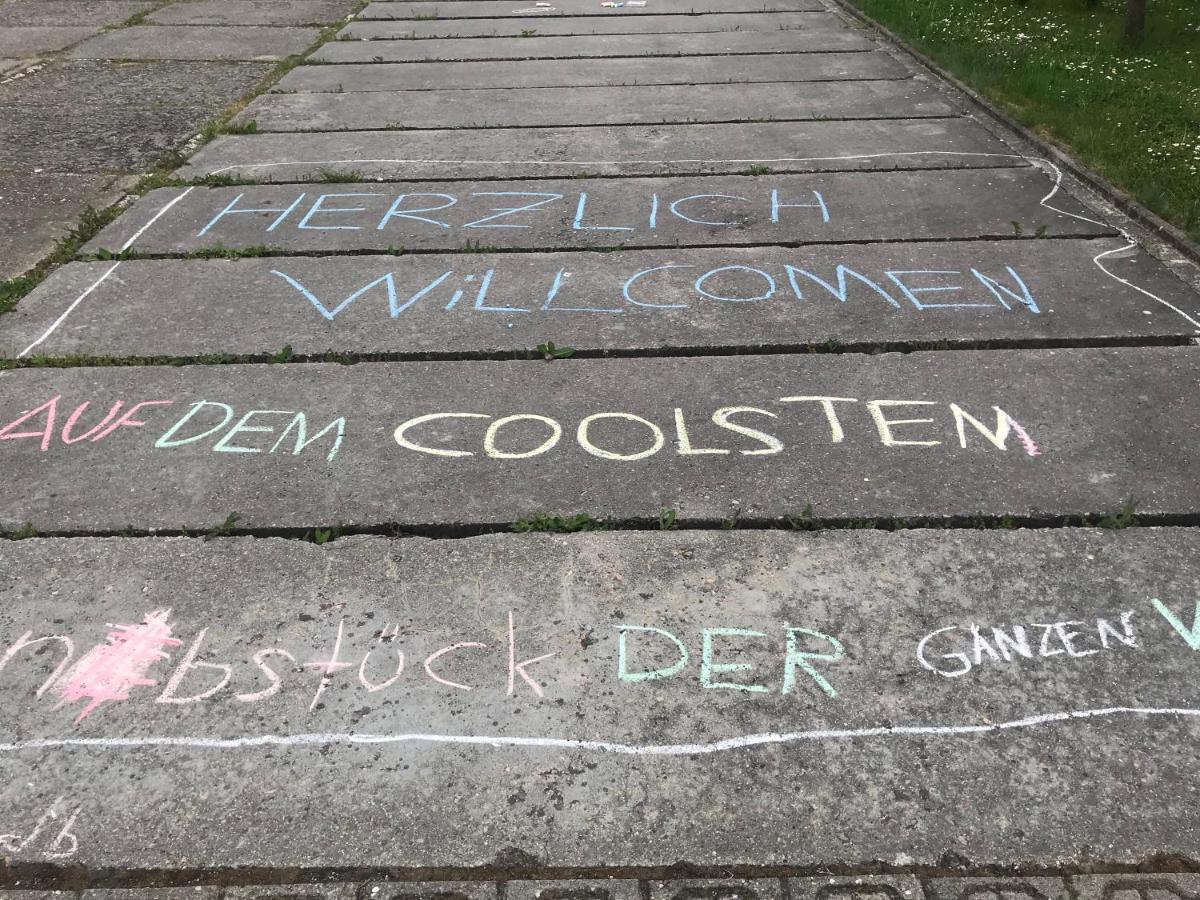 HERZLICH
WiLLCOMEN
AUF DEM COOLSTEN
DER GANZEN